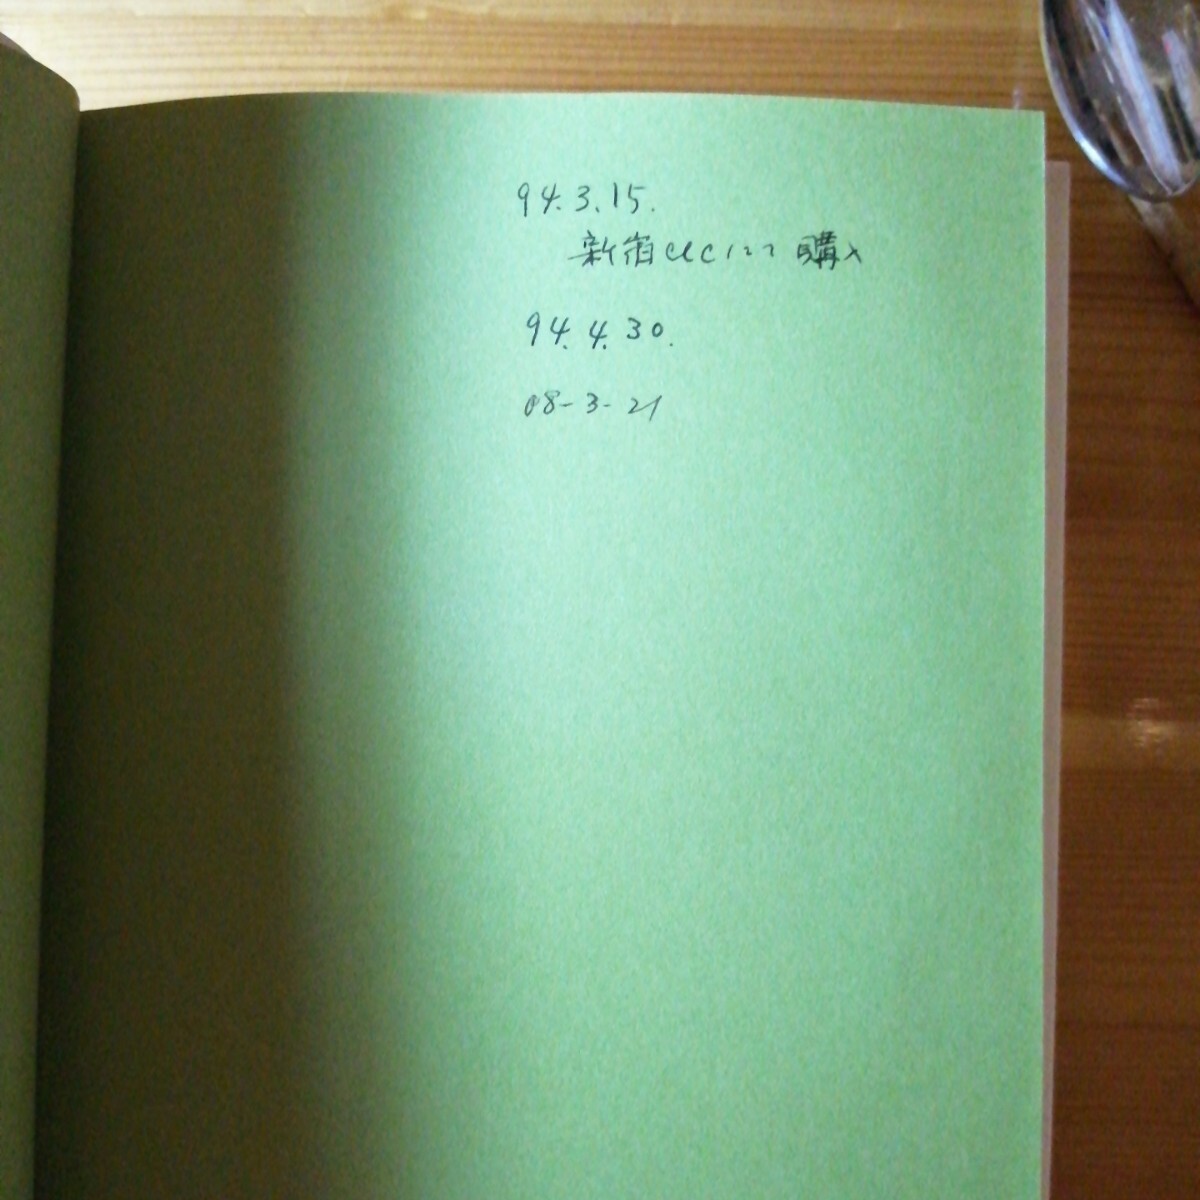 94.3.15.
新宿 にて 購入
94.4.30.
08-3-21